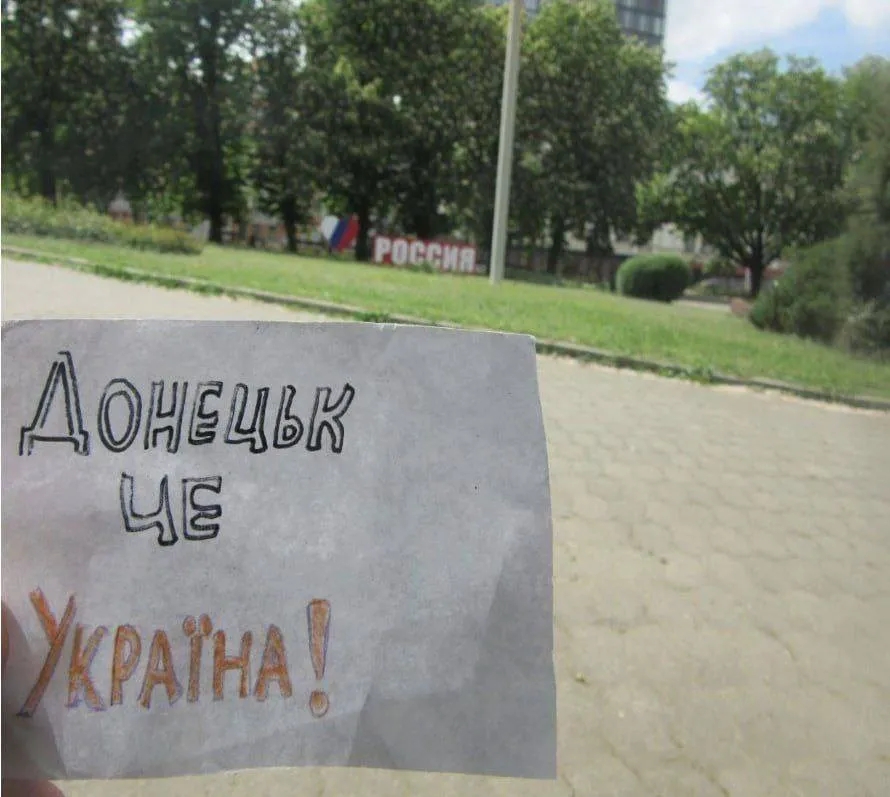 РОССИЯ
ДОНЕЦЬК
ЦЕ
УКРАЇНА!